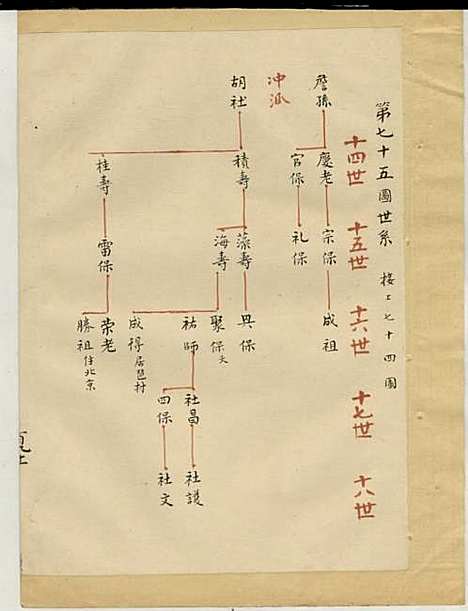 第七十五圖世系 接上七十四圖
十四世
十五世
十六世
十七世
十八世
詹孫
慶老
宗保
成祖
官保
礼保
冲派
胡社
積壽
藻壽
具保
海壽
聚保 大
祐師
社昌
社護
四保
社文
成得 居邑村
桂壽
雷保
荣老
勝祖 住北京